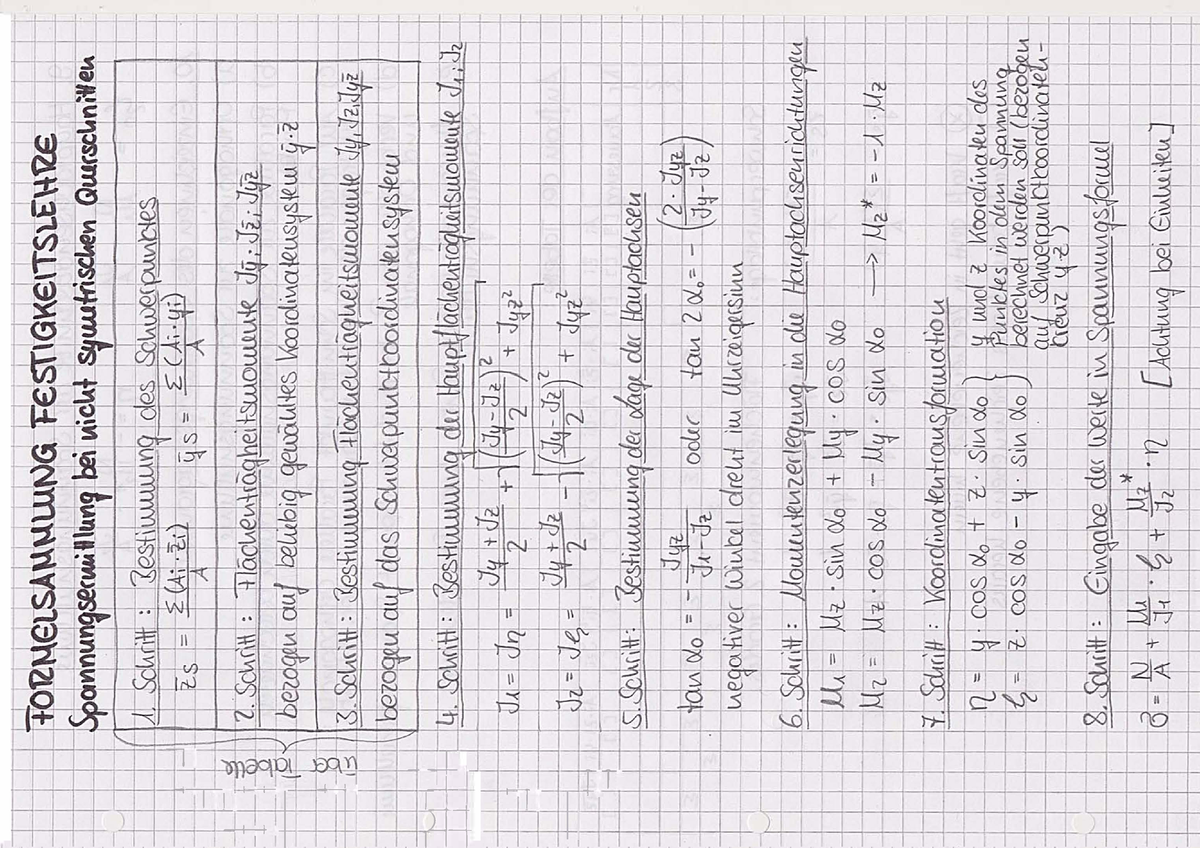 FORMELSAMMLUNG FESTIGKEITSLEHRE
Spannungsermittlung bei nicht symetrischen Querschnitten
1. Schritt: Bestimmung des Schwerpunktes
z̄s = Σ(Ai·z̄i)/A   ȳs = Σ(Ai·ȳi)/A
2. Schritt: Flächenträgheitsmomente Jȳ; Jz̄; Jȳz̄
bezogen auf beliebig gewähltes Koordinatensystem ȳ·z̄
3. Schritt: Bestimmung Flächenträgheitsmomente Jy, Jz, Jyz
bezogen auf das Schwerpunktkoordinatensystem
über Tabelle
4. Schritt: Bestimmung der Hauptflächenträgheitsmomente J1; J2
J1 = Jη = (Jy + Jz)/2 + √(((Jy - Jz)/2)² + Jyz²)
J2 = Jζ = (Jy + Jz)/2 - √(((Jy - Jz)/2)² + Jyz²)
5. Schritt: Bestimmung der Lage der Hauptachsen
tan α0 = - Jyz/(J1 - Jz)   oder   tan 2α0 = - (2·Jyz/(Jy - Jz))
negativer Winkel dreht im Uhrzeigersinn
6. Schritt: Momentenzerlegung in die Hauptachsenrichtungen
M1 = Mz · sin α0 + My · cos α0
M2 = Mz · cos α0 - My · sin α0 → M2* = -1 · M2
7. Schritt: Koordinatentransformation
η = y · cos α0 + z · sin α0
ζ = z · cos α0 - y · sin α0
y und z Koordinaten des
Punktes in dem Spannung
berechnet werden soll (bezogen
auf Schwerpunktkoordinaten-
kreuz y z)
8. Schritt: Eingabe der Werte in Spannungsformel
σ = N/A + M1/J1 · ζ + M2*/J2 · η   [Achtung bei Einheiten]